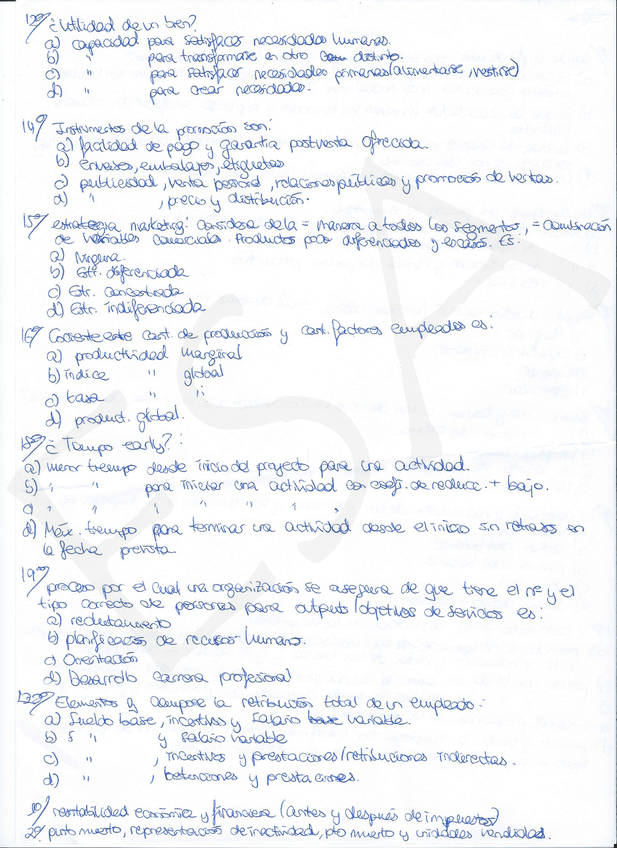 12º/ ¿Utilidad de un bien?
a) capacidad para satisfacer necesidades humanas.
b) " para transformarse en otro distinto.
c) " para satisfacer necesidades primarias (alimentarse, vestirse)
d) " para crear necesidades.
14º/ Instrumentos de la promoción son:
a) facilidad de pago y garantía postventa ofrecida.
b) envases, embalajes, etiquetas
c) publicidad, venta personal, relaciones públicas y promoción de ventas.
d) " , precio y distribución.
15º/ estrategia marketing: considera de la = manera a todos los segmentos, = combinación
de variables comerciales. Productos poco diferenciados y escasos. Es:
a) Ninguna.
b) Estr. diferenciada
c) Estr. concentrada
d) Estr. indiferenciada
16º/ Cociente entre cant. de producción y cant. factores empleados es:
a) productividad marginal
b) índice " global
c) tasa " "
d) product. global.
18º/ ¿Tiempo early?:
a) menor tiempo desde inicio del proyecto para una actividad.
b) " " para iniciar una actividad con coefi. de reducc. + bajo.
c) " " " " " " "
d) Máx. tiempo para terminar una actividad desde el inicio sin retrasos en
la fecha prevista.
19º/ proceso por el cual una organización se asegura de que tiene el nº y el
tipo correcto de personas para outputs/objetivos de servicios es:
a) reclutamiento
b) planificación de recursos humanos.
c) Orientación
d) Desarrollo carrera profesional
20º/ Elementos q compone la retribución total de un empleado:
a) Sueldo base, incentivos y salario base variable.
b) S " y salario variable
c) " , incentivos y prestaciones/retribuciones indirectas.
d) " , retenciones y prestaciones.
1º/ rentabilidad económica y financiera (antes y después de impuestos)
2º/ punto muerto, representación de inactividad, pto muerto y unidades vendidas.
ESA